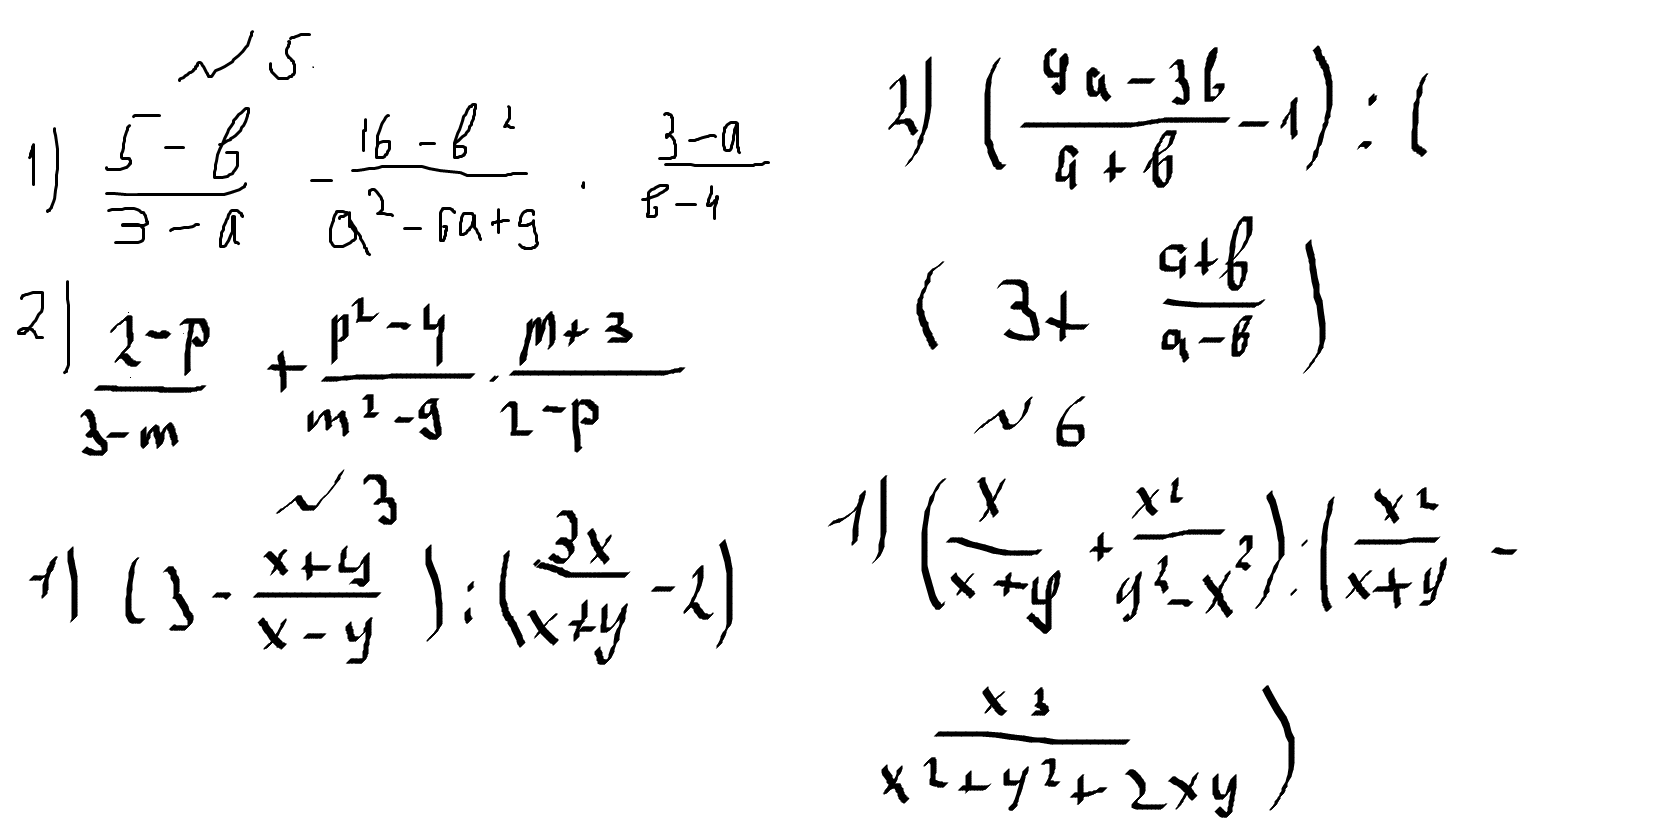 ~ 5.
1) (5 - b)/(3 - a) - (16 - b²)/(a² - 6a + 9) · (3 - a)/(b - 4)
2) (2 - p)/(3 - m) + (p² - 4)/(m² - 9) · (m + 3)/(2 - p)
~ 3
1) (3 - (x + y)/(x - y)) : ((3x)/(x + y) - 2)
2) ((4a - 3b)/(a + b) - 1) : (
(3 + (a + b)/(a - b))
~ 6
1) (x/(x + y) + x²/(y² - x²)) : (x²/(x + y) -
x³/(x² + y² + 2xy))